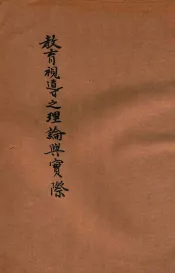 教育視導之理論與實際